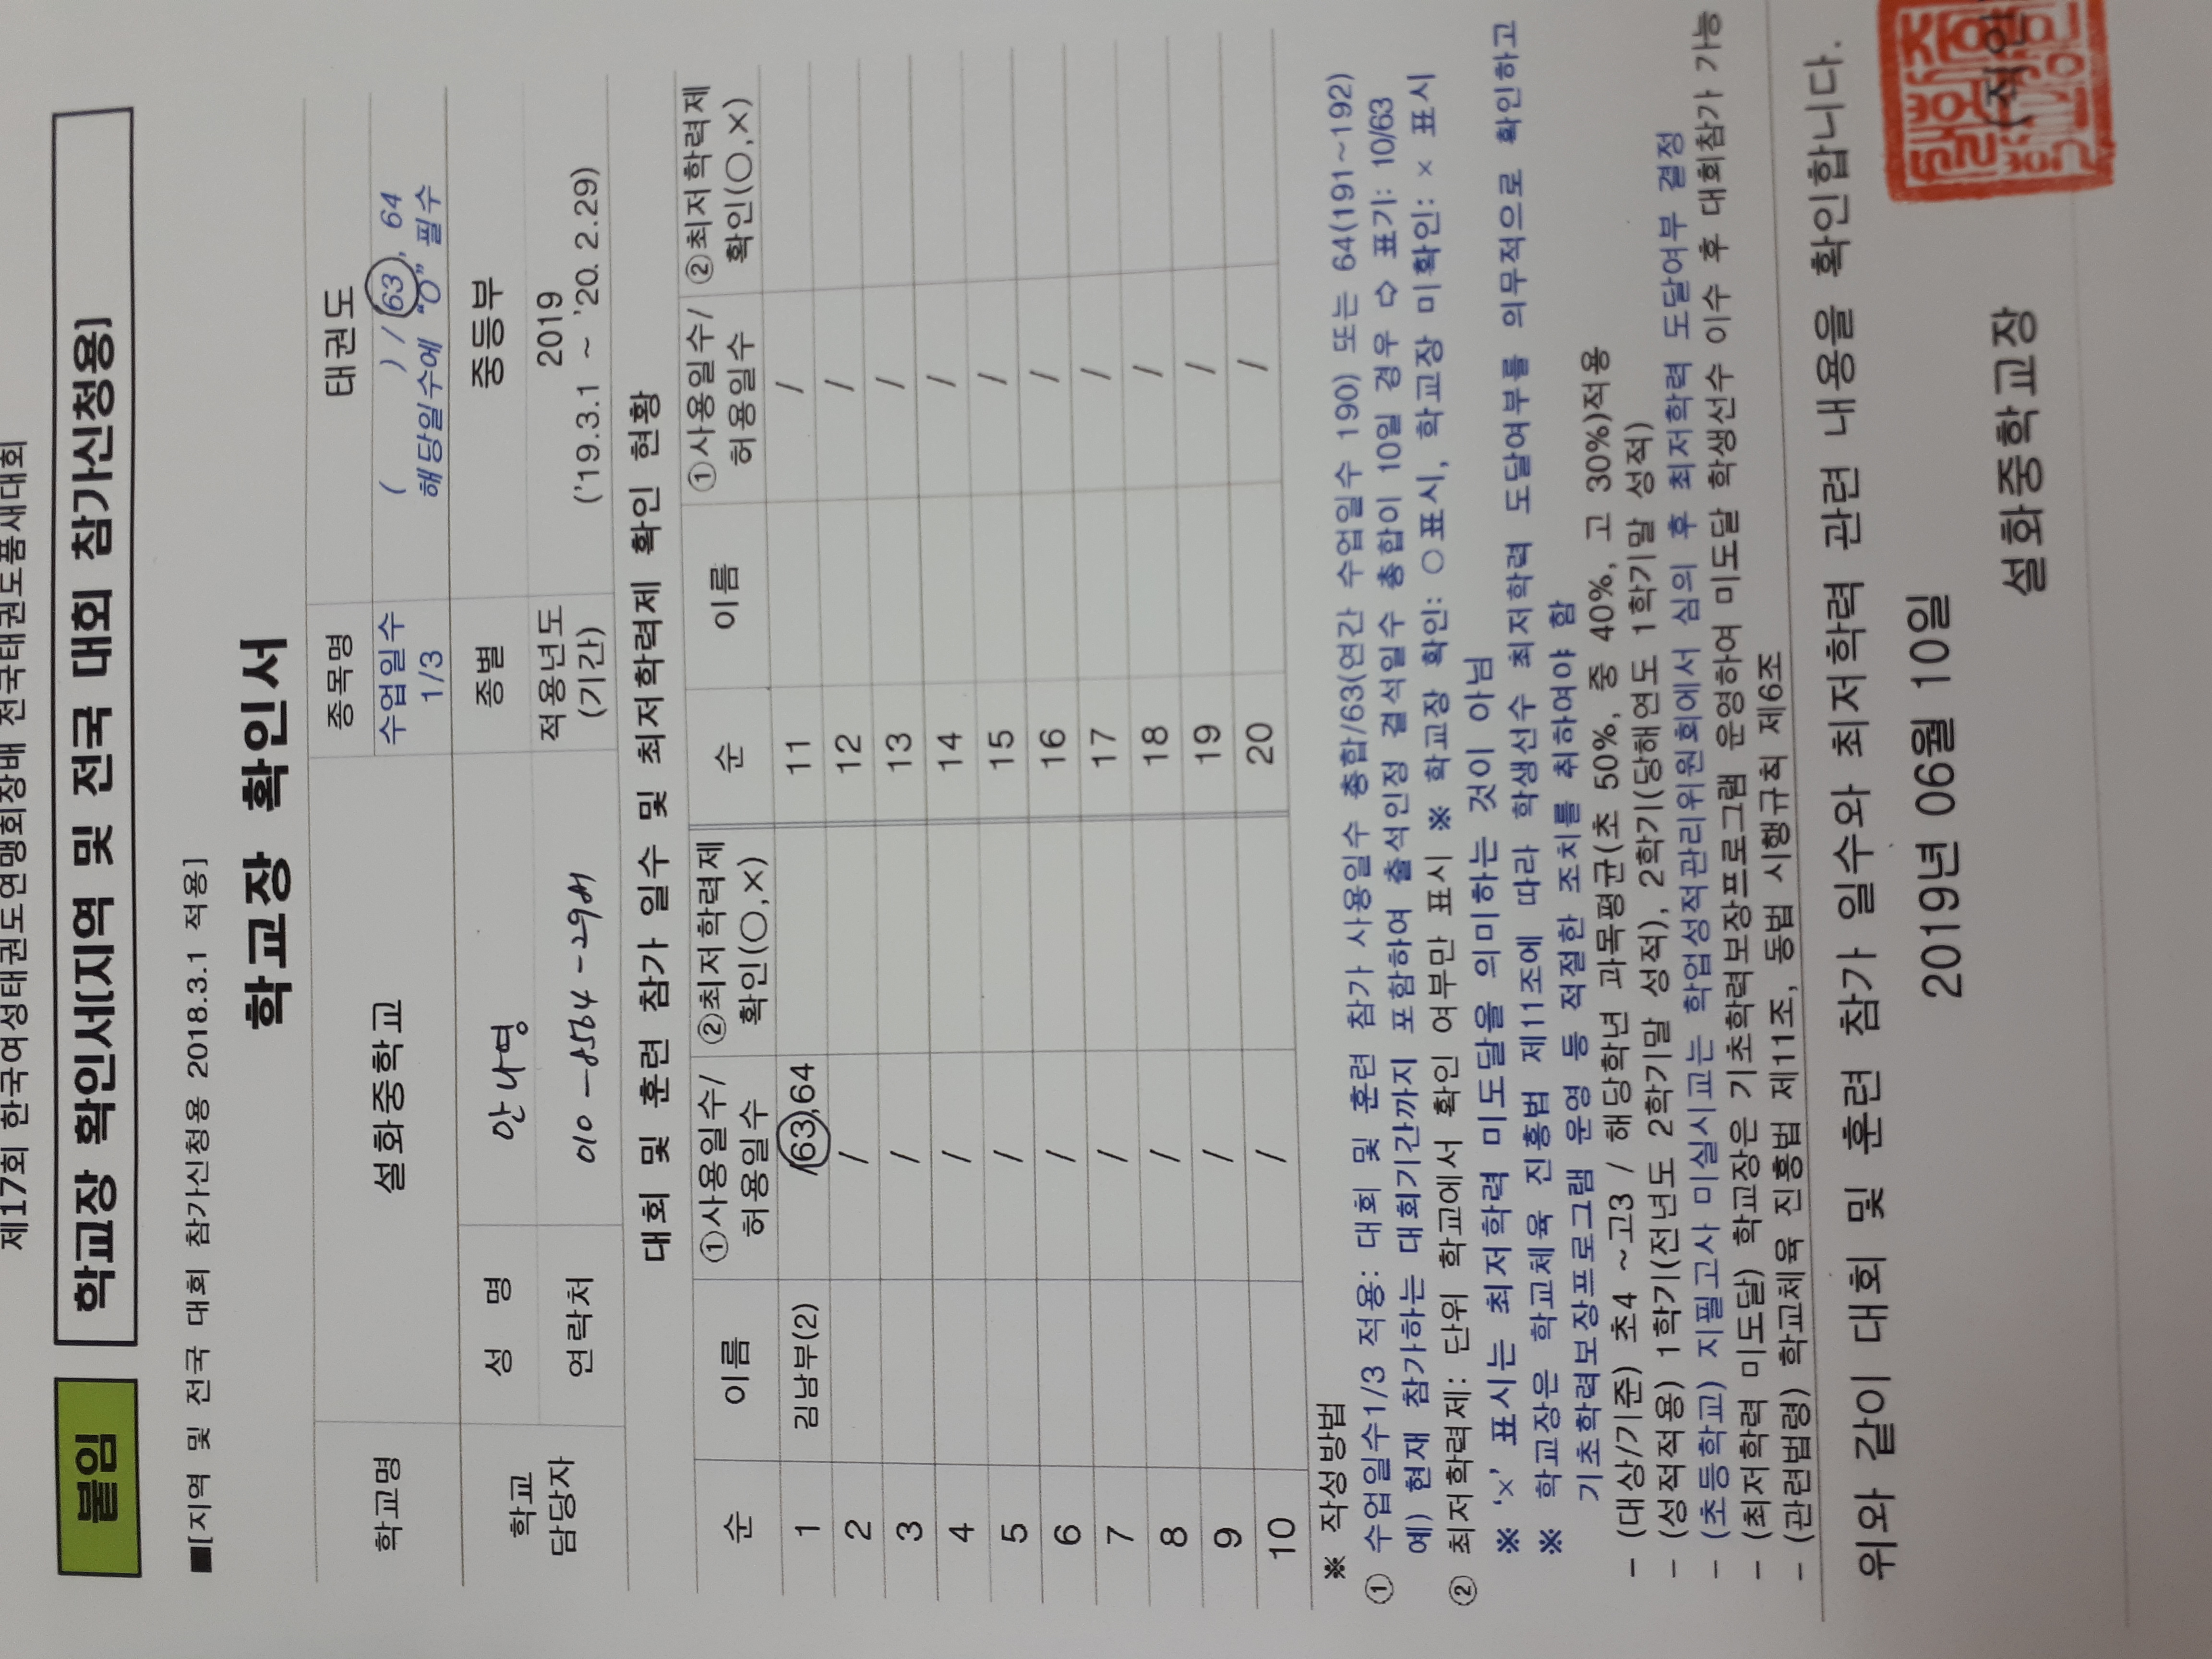 제17회 한국여성태권도연맹회장배 전국태권도품새대회
붙임 학교장 확인서[지역 및 전국 대회 참가신청용]
■[지역 및 전국 대회 참가신청용 2018.3.1 적용]
학교장 확인서
학교명 설화중학교 종목명 태권도
수업일수 1/3 ( ) / 63, 64
해당일수에 "O" 필수
학교 담당자 성 명 안나영 종별 중등부
연락처 010-8564- 적용년도 (기간) 2019
('19.3.1 ~ '20. 2.29)
대회 및 훈련 참가 일수 및 최저학력제 확인 현황
순 이름 ①사용일수/허용일수 ②최저학력제 확인(○,×) 순 이름 ①사용일수/허용일수 ②최저학력제 확인(○,×)
1 김남부(2) /63,64 11 /
2 / 12 /
3 / 13 /
4 / 14 /
5 / 15 /
6 / 16 /
7 / 17 /
8 / 18 /
9 / 19 /
10 / 20 /
※ 작성방법
① 수업일수1/3 적용: 대회 및 훈련 참가 사용일수 총합/63(연간 수업일수 190) 또는 64(191~192)
예) 현재 참가하는 대회기간까지 포함하여 출석인정 결석일수 총합이 10일 경우 ⇨ 표기: 10/63
② 최저학력제: 단위 학교에서 확인 여부만 표시 ※ 학교장 확인: ○표시, 학교장 미확인: × 표시
※ '×' 표시는 최저학력 미도달을 의미하는 것이 아님
※ 학교장은 학교체육 진흥법 제11조에 따라 학생선수 최저학력 도달여부를 의무적으로 확인하고
기초학력보장프로그램 운영 등 적절한 조치를 취하여야 함
- (대상/기준) 초4 ~고3 / 해당학년 과목평균(초 50%, 중 40%, 고 30%)적용
- (성적적용) 1학기(전년도 2학기말 성적), 2학기(당해연도 1학기말 성적)
- (초등학교) 지필고사 미실시교는 학업성적관리위원회에서 심의 후 최저학력 도달여부 결정
- (최저학력 미도달) 학교장은 기초학력보장프로그램 운영하여 미도달 학생선수 이수 후 대회참가 가능
- (관련법령) 학교체육 진흥법 제11조, 동법 시행규칙 제6조
위와 같이 대회 및 훈련 참가 일수와 최저학력 관련 내용을 확인합니다.
2019년 06월 10일
설화중학교장 (직인